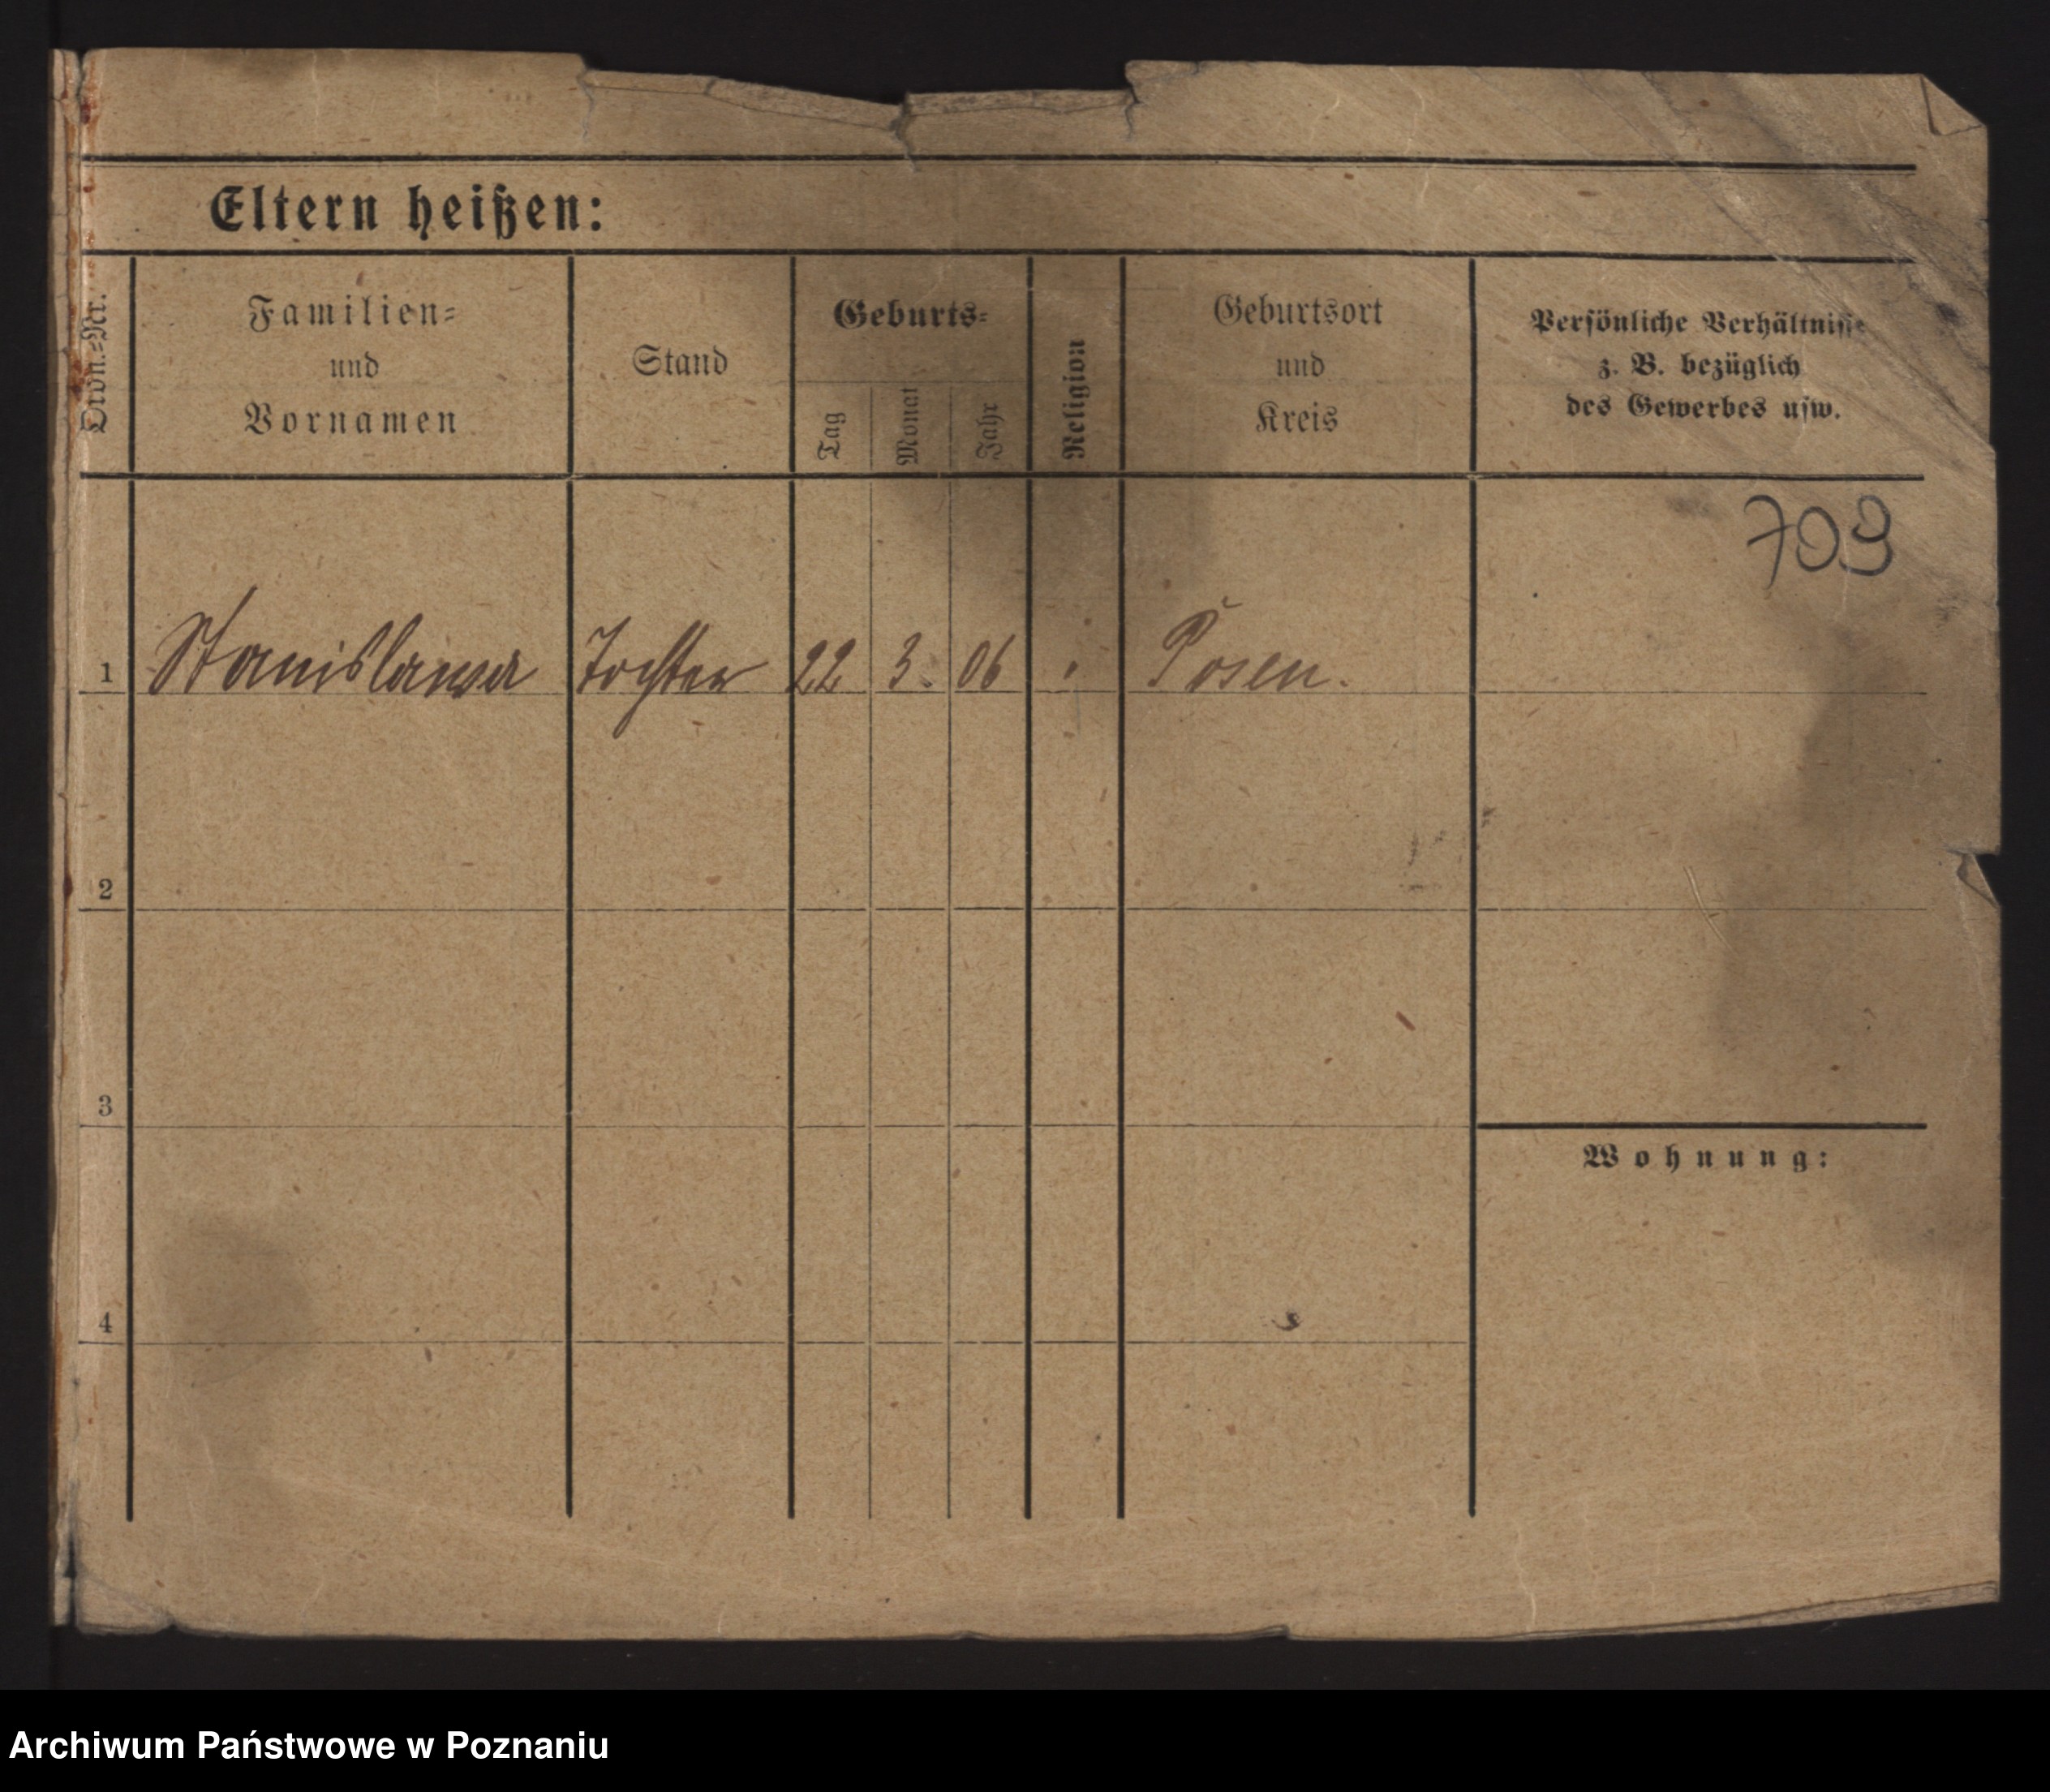 Eltern heißen:
Ordn.-Nr.
Familien-
und
Vornamen
Stand
Geburts-
Tag
Monat
Jahr
Religion
Geburtsort
und
Kreis
Persönliche Verhältnisse
z. B. bezüglich
des Gewerbes usw.
709
1 Stanislawa Tochter 22 3. 06 Posen.
2
3
Wohnung:
4
Archiwum Państwowe w Poznaniu